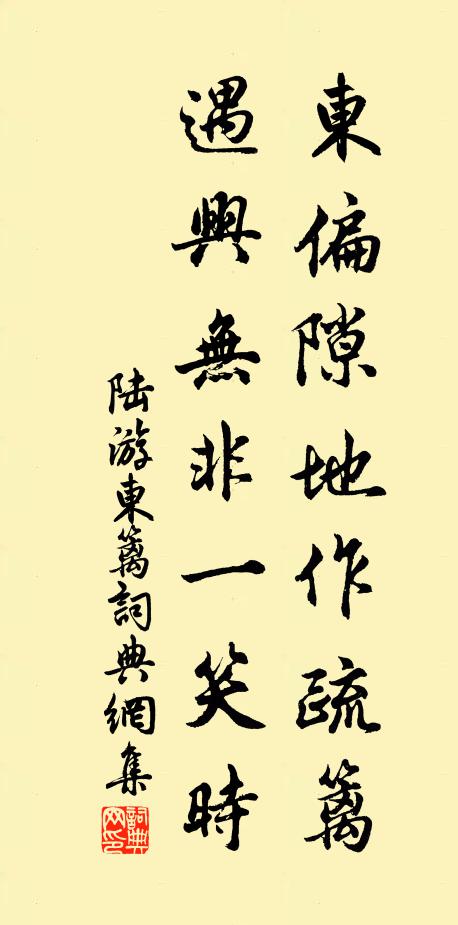 東偏隙地作疏籬
遇興無非一笑時
陆游東籬詞典網集
詞典網印